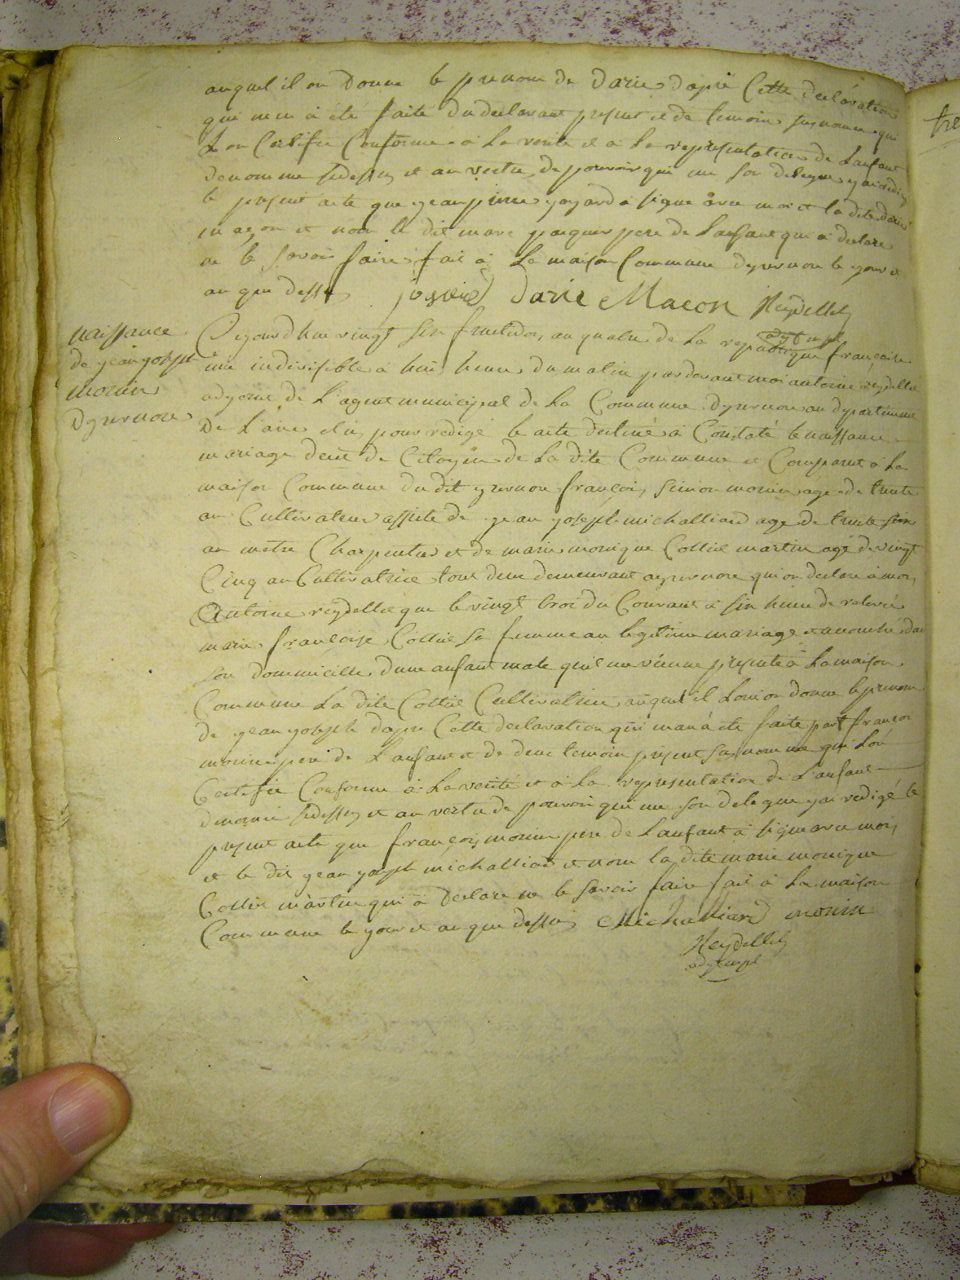 auquel il on donne le prenom de darie dapré Cette declaration
qui m'en à été faite du declarant present et de temoin susnomme qui
Lon Certifie Conforme à La verité et à La representation de Lanfant
denomme sidessus et au vertu de pouvoir qui me son delegue j'ai redigé
le present acte que jean pierre joyard à signe avec moi et la dite darie
maçon et non le dit marc paquer pere de Lanfant qui à declare
ne le savoir faire fait à La maison Commune dyzernon le jour et
an que dessus joyard darie Macon Reydellet
naissance
de jean joseph
monin
dyzernon
Ce jourdhui vingt six fructidor, an quatre de la republique française
une indivisible à huit heure du matin pardevant moi antoine reydellet
adjoint de L'agent municipal de La Commune dyzernon au departement
De L'ain elu pour redigé le acte destiné à Constaté le naissance
mariage decè de Citoyen de La dite Commune et Comparut à La
maison Commune du dit yzernon françois simon monin age de trente
an Cultivateur assisté de jean joseph michalliard age de trente six
an metre Charpentier et de marie monique Collet martin agé de vingt
Cinq an Cultivatrice tous deux demeurant a yzernore qui on declare à moi,
Antoine reydellet que le vingt troi du Courant à six heure de relevée
marie françoise Collet sa femme an legitime mariage et acouché dan
son dommicille dune anfant male qu'il me vienne presente à La maison
Commune La dite Collet Cultivatrice auquel il Lon on donne le prenom
de jean joseph dapré Cette declaration qui man à été faite par françois
monin pere de Lanfant et de deux temoin present susnomme qui Lon
Certifie Conforme à La verité et à La representation de L'anfant
denomé sidessus et au vertu de pouvoir qui me son delegue j'ai redigé le
present acte que françois monin pere de Lanfant à signe avec moi,
et le dit jean joseph michalliard et non la dite marie monique
Collet martin qui à declare ne le savoir faire fait à La maison
Commune le jour et an que dessus Michalliard monin
Reydellet